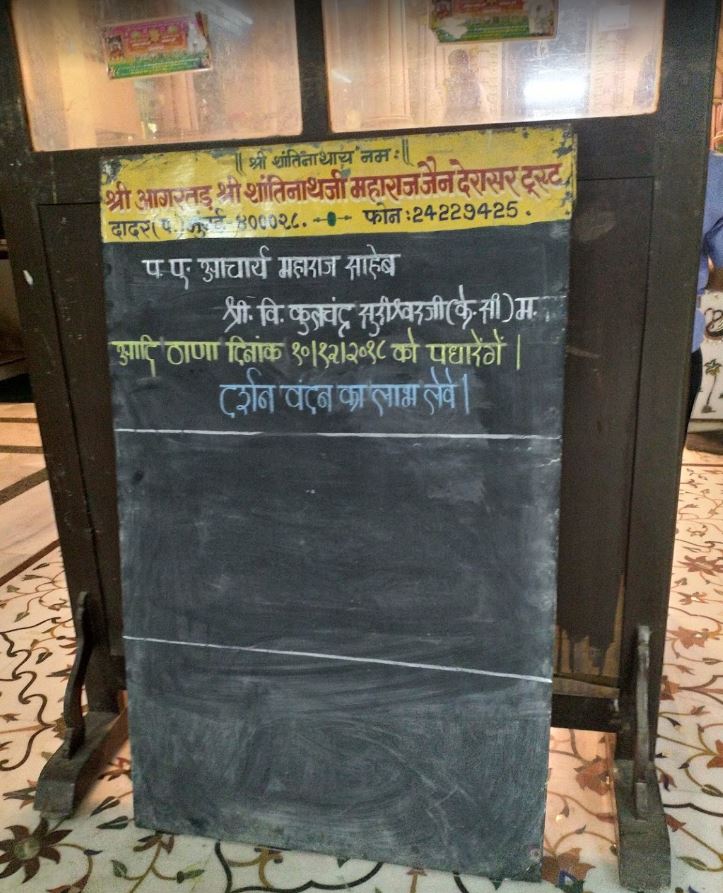 ॥ श्री शांतिनाथाय नमः ॥
श्री आगरतड श्री शांतिनाथजी महाराज जैन देरासर ट्रस्ट
दादर (प.) मुंबई-४०००२८. फोन : 24229425.
प. पू. आचार्य महाराज साहेब
श्री. वि. कुलचंद्र सुरीश्वरजी (के. सी) म.
आदि ठाणा दिनांक १०/१२/२०१८ को पधारेगें।
दर्शन वंदन का लाभ लेवे।